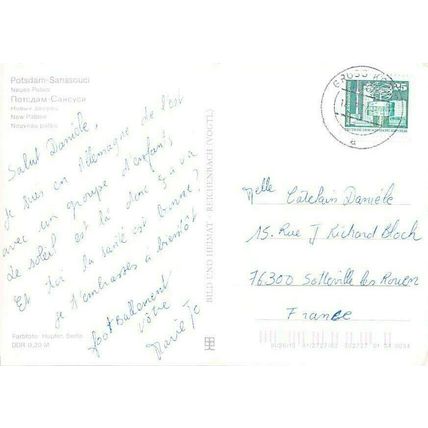 Potsdam-Sanssouci
Neues Palais
Потсдам-Сансуси
Новый дворец
New Palace
Nouveau palais
Salut Danièle,
je suis en Allemagne de l'est
avec un groupe d'enfants
Le soleil est là donc ça va
Et toi la santé est bonne?
je t'embrasse à bientôt
footballement
vôtre
Marie Jo
Farbfoto: Hopfer,
DDR 0,20 M
BILD UND HEIMAT REICHENBACH (VOGTL)
GROSS
25
a
Melle Catelain Danièle
15. Rue J Richard Bloch
76300 Sotteville les Rouen
France